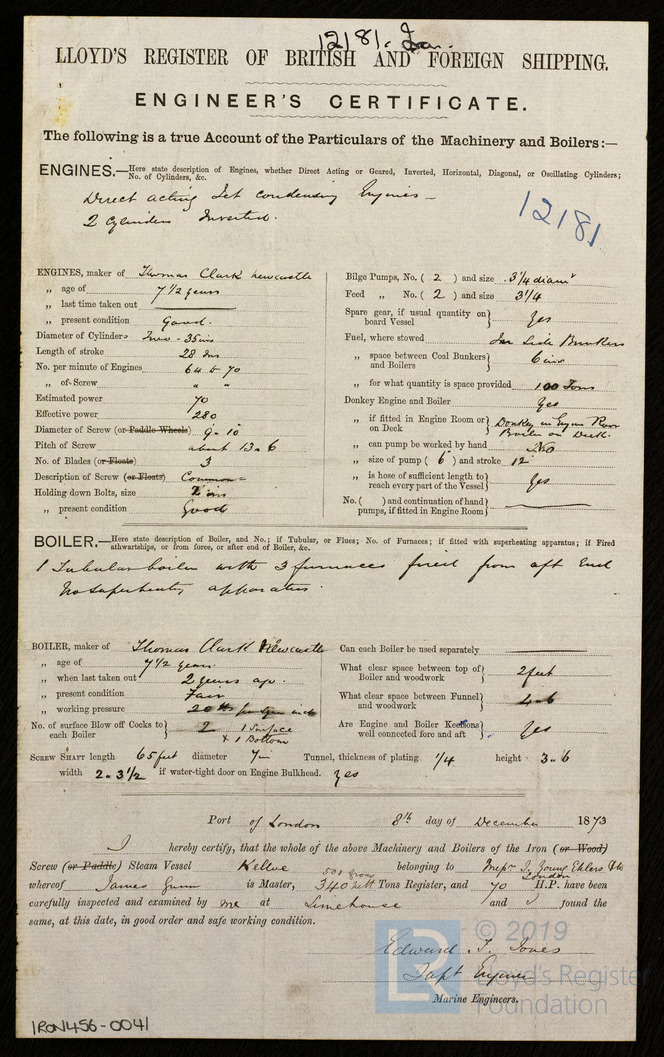 12181. Iron.
LLOYD'S REGISTER OF BRITISH AND FOREIGN SHIPPING.
ENGINEER'S CERTIFICATE.
The following is a true Account of the Particulars of the Machinery and Boilers:—
ENGINES.—Here state description of Engines, whether Direct Acting or Geared, Inverted, Horizontal, Diagonal, or Oscillating Cylinders;
No. of Cylinders, &c.
Direct acting Jet condensing Engines —
2 Cylinders Inverted.
12181
ENGINES, maker of Thomas Clark Newcastle
„ age of 7 1/2 years
„ last time taken out
„ present condition Good.
Diameter of Cylinders Two - 35 ins
Length of stroke 28 Ins
No. per minute of Engines 64 to 70
„ of Screw „ „
Estimated power 70
Effective power 280
Diameter of Screw (or Paddle Wheels) 9 - 10
Pitch of Screw about 13 - 6
No. of Blades (or Floats) 3
Description of Screw (or Floats) Common
Holding down Bolts, size 2 ins
„ present condition Good
Bilge Pumps, No. ( 2 ) and size 3 1/4 diamr
Feed „ No. ( 2 ) and size 3 1/4
Spare gear, if usual quantity on board Vessel } Yes
Fuel, where stowed In Side Bunkers
„ space between Coal Bunkers and Boilers } 6 ins
„ for what quantity is space provided 100 Tons
Donkey Engine and Boiler Yes
„ if fitted in Engine Room or on Deck } Donkey in Engine Room
Boiler on Deck.
„ can pump be worked by hand No
„ size of pump ( 6 ) and stroke 12
„ is hose of sufficient length to reach every part of the Vessel } Yes
No. ( ) and continuation of hand pumps, if fitted in Engine Room }
BOILER.—Here state description of Boiler, and No.; if Tubular, or Flues; No. of Furnaces; if fitted with superheating apparatus; if Fired
athwartships, or from force, or after end of Boiler, &c.
1 Tubular boiler with 3 furnaces fired from aft End
No Superheating apparatus.
BOILER, maker of Thomas Clark Newcastle
„ age of 7 1/2 years.
„ when last taken out 2 years ago.
„ present condition Fair
„ working pressure 20 lbs per Sqre inch
No. of surface Blow off Cocks to each Boiler } 2 1 Surface
& 1 Bottom
Can each Boiler be used separately
What clear space between top of Boiler and woodwork } 2 feet
What clear space between Funnel and woodwork } 4-6
Are Engine and Boiler Keelsons well connected fore and aft } Yes
SCREW SHAFT length 65 feet diameter 7 in Tunnel, thickness of plating 1/4 height 3 - 6
width 2 - 3 1/2 if water-tight door on Engine Bulkhead. Yes
Port of London 8th day of December 1873
I hereby certify, that the whole of the above Machinery and Boilers of the Iron (or Wood)
Screw (or Paddle) Steam Vessel Kelloe belonging to Messrs J. Young Ehlers & Co
London
whereof James Gunn is Master, 340 nett Tons Register, and 70 H.P. have been
carefully inspected and examined by me at Limehouse and I found the
same, at this date, in good order and safe working condition.
Edward T. Jones
Marine Engineers.
IRON456-0041
LR
© 2019
Lloyd's Register
Foundation